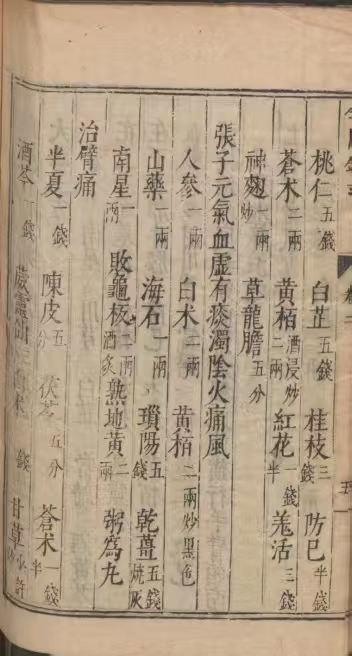 桃仁五錢 白芷五錢 桂枝三錢 防巳半錢
蒼术二兩 黄栢酒浸炒二兩 紅花一錢半 羗活三錢
神麯炒一兩 草龍膽五分
張子元氣血虛有痰濁陰火痛風
人參一兩 白术二兩 黄栢二兩炒黒色
山藥一兩 海石一兩 瑣陽五錢 乾薑五錢燒灰
南星一兩 敗龜板酒炙二兩 熟地黄二兩 粥爲丸
治臂痛
半夏一錢 陳皮五分 茯苓五分 蒼术一錢半
酒芩 錢 威靈仙三 术 錢 甘草少許